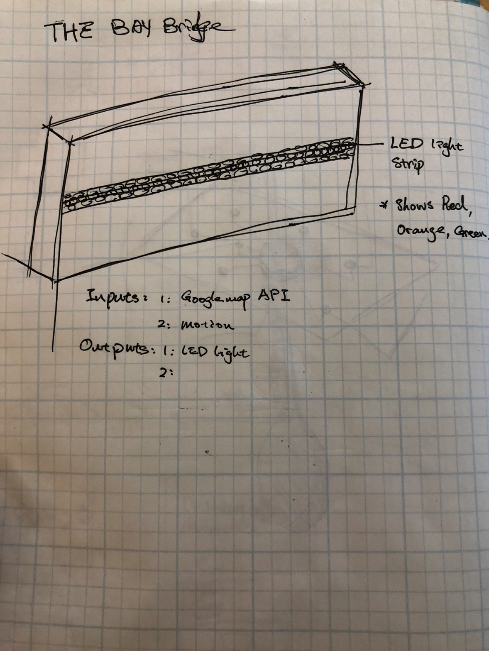 THE BAY Bridge
LED light
Strip
* Shows Red,
Orange, Green.
Inputs: 1: Googlemap API
2: motion
Outputs: 1: LED light
2: